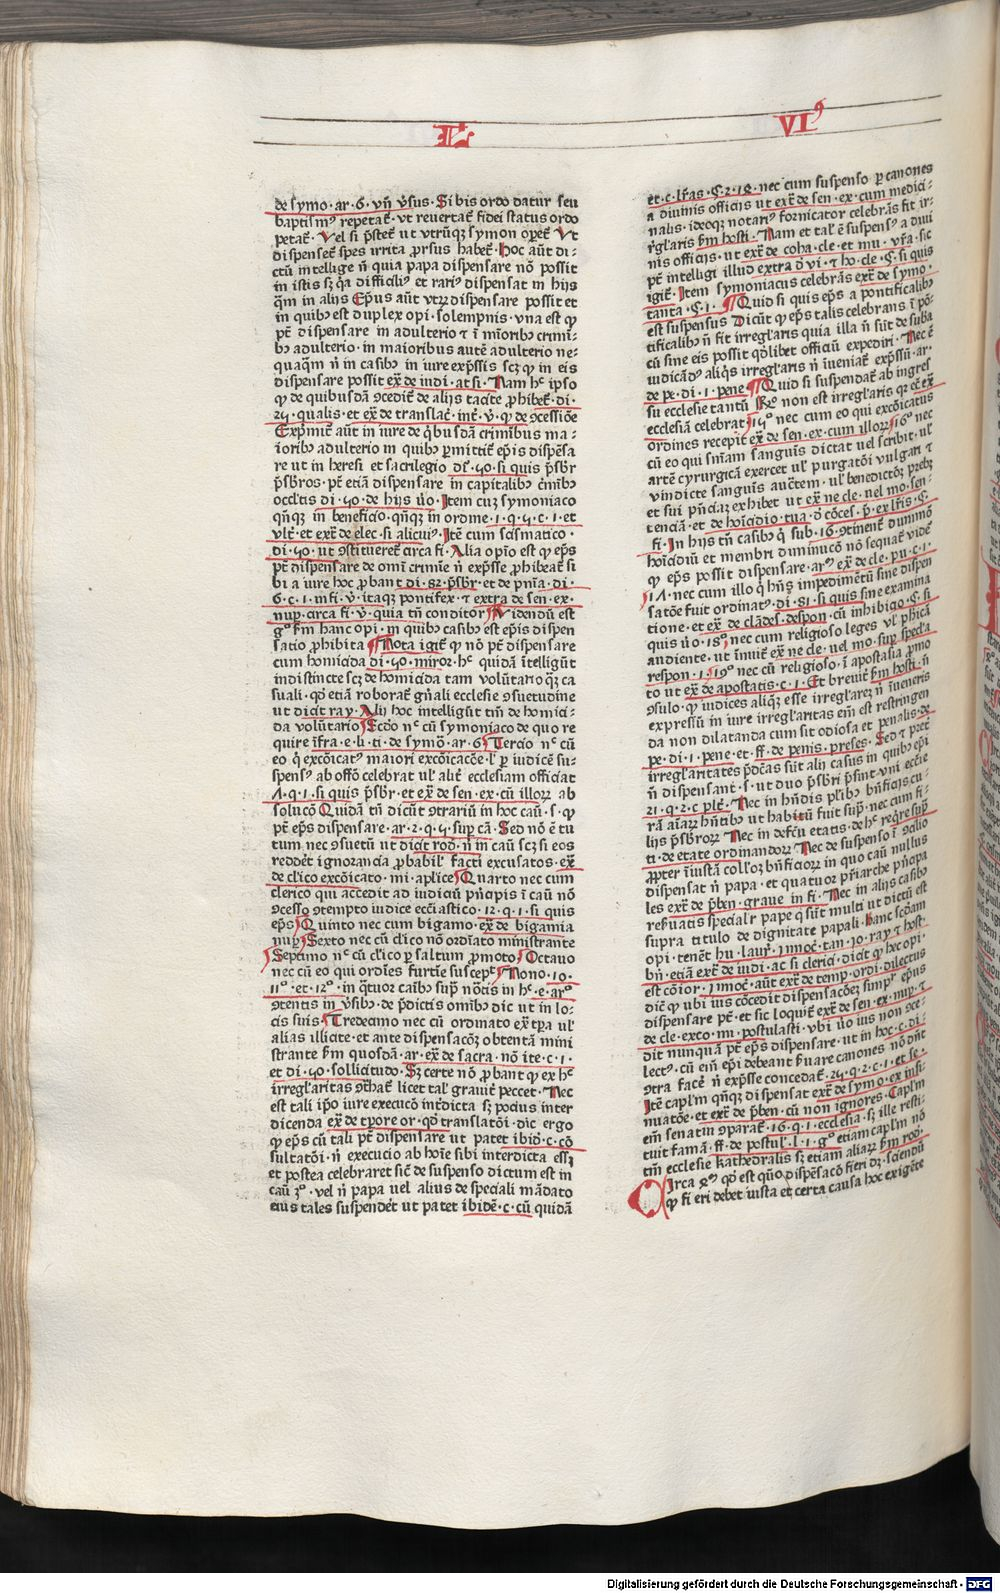 L VIꝰ
de symo·ar·6·vn̄ v̓sus·Si bis ordo datur seu
baptismꝰ repetat̄·vt reuertat̄ fidei status ordo
petat̄·Vel si p̄stet̄ ut vtrūqꝫ symon opet̄ Vt
dispenset̄ spes irrita ꝓrsus habet̄·Hoc aūt di⸗
ctū intellige n̄ quia papa dispensare nō possit
in istis sꝫ q̓a difficiliꝰ et rariꝰ dispensat in hijs
q̄m in alijs Ep̄us aūt vtꝝ dispensare possit et
in quibꝫ est duplex opi·solempnis·vna est ꝙ
pt̄ dispensare in adulterio ⁊ ī mīoribꝫ crimī⸗
bꝫ adulterio·in maioribus autē adulterio ne⸗
quaq̄m n̄ in casibꝫ in iure exp̄ssis scꝫ ꝙ in eis
dispensare possit ex̄ de iudi·at si·Nam hͨ ipso
ꝙ de quibusdā ꝯcedit̄ de alijs tacite ꝓhibet̄·di·
25·qualis·et ex̄ de translac̄·int̄·v̓·ꝙ de ꝯcessiōe
Exp̄mit̄ aūt in iure de q̓busdā crimībus ma⸗
ioribꝫ adulterio in quibꝫ ꝑmittit̄ ep̄is dispēsa
re ut in heresi et sacrilegio di·50·si quis p̄sbr̄
p̄sbros·pt̄ etiā dispensare in capitalibꝫ c̓mībꝫ
occl̄tis di·50·de hijs v̓o·Item cuꝫ symoniaco
qn̄qꝫ in beneficio·qn̄qꝫ in ordine·1·q·5·c·1·et
vlt̄·et ex̄ de elec·si alicuiꝰ·Itē cum scismatico·
di·50·ut ꝯstitueret̄ circa fi·Alia opīo est ꝙ ep̄s
pt̄ dispensare de omī crimīe n̄ exp̄sse ꝓhibeat̄ si
bi a iure hoc ꝓbant di·82·p̄sbr̄·et de pn̄ia·di·
6·c·1·infi·v̓·itaqꝫ pontifex·⁊ extra de sen·ex·
nup̄·circa fi·v̓·quia tn̄ conditor Videndū est
g° s̄m hanc opi·in quibꝫ casibꝫ est ep̄is dispen
satio ꝓhibita Nota igit̄ ꝙ nō pt̄ dispensare
cum homicida di·50·miror·hͨ quidā ītelligūt
indistincte scꝫ de homicida tam volūtario qꝫ ca
suali·qd̓ etiā roborat̄ gn̄ali ecclesie ꝯsuetudine
ut dicit ray·Alij hoc intelligūt tm̄ de homici⸗
da volūtario Scd̄o nͨ cū symoniaco de quo re
quire īfra·e·li·ti·de symō·ar·6 Tercio nͨ cū
eo q̓ excōicatꝰ maiori excōicacōe·l̓ ꝑ iudicē su⸗
spensꝰ ab offō celebrat ul̓ alit̄ ecclesiam officiat
Λ·q·1·si quis p̄sbr̄·et ex̄ de sen·ex·cū illoꝝ ab
solucō Quidā tn̄ dicūt ꝯtrariū in hoc caū·s·ꝙ
pt̄ ep̄s dispensare·ar·2·q·5·sup̄ cā·Sed nō ē tu
tum nec ꝯsuetū ut dicit rod̄·n̄ in caū scꝫ si eos
reddēt ignorancia ꝓbabil̓ facti excusatos·ex̄
de cl̓ico excōicato·mi·aplice Quarto nec cum
clerico qui accedit ad iudiciū pn̄cipis ī caū nō
ꝯcesso ꝯtempto iudice ecc̄iastico·12·q·1·si quis
ep̄s Quinto nec cum bigamo·ex̄ de bigamia
nup̄ Sexto nec cū cl̓ico nō ordīato ministrante
Septimo nͨ cū cl̓ico ꝑ saltum ꝓmoto Octauo
nec cū eo qui ordīes furtīe suscepͭ Nono·10·
11°·et·12°·in q̓tuor caībꝫ sup̄ nōtis in hͨ·e·ar°
ꝯtentis in v̓sibꝫ·de p̄dictis omībꝫ dic ut in lo⸗
cis suis Tredecimo nec cū ordinato ex̄ tp̄a ul̓
alias illicite·et ante dispensacōꝫ obtentā mini
strante s̄m quosdā·ar·ex̄ de sacra·nō ite·c·1·
et di·50·sollicitudo·Sꝫ certe nō ꝓbant ꝙ ex hͨ
irregl̓aritas ꝯt̓hat̄ licet tal̓ grauit̄ peccet·Nec
est tali ip̄o iure execucō int̓dicta sꝫ pocius inter
dicenda ex̄ de tp̄ore or·qd̓ translatōi·dic ergo
ꝙ ep̄s cū tali pt̄ dispensare ut patet ibid̄·c·cō
sultatōi·n̄ execucio ab hoīe sibi interdicta essꝫ
et postea celebraret sic̄ de suspenso dictum est in
caū 3°·vel n̄ papa uel alius de speciali mādato
eius tales suspendēt ut patet ibidē·c·cū quidā
et·c·lr̄as·§·2·18·nec cum suspenso ꝑ canones
a diuinis officijs ut ex̄ de sen·ex·cum medici⸗
nalis·ideoqꝫ notariꝰ fornicator celebrās fit ir⸗
rgl̓aris s̄m hosti·Nam et tal̓ ē suspensꝰ a diui
nis officijs·ut ex̄ de coha·cle·et mu·vr̄a·sic
pt̄ intelligi illud extra d̓ vi·⁊ ho·cle·§·si quis
igit̄·Item symoniacus celebrās ex̄ de symo·
tanta·§·1·Quid si quis ep̄s a pontificalibꝫ
est suspensus Dicūt ꝙ ep̄s talis celebrans ī pō⸗
tificalibꝫ n̄ fit irregl̓aris quia illa n̄ sūt de suba
cū sine eis possit qd̓libet officiū expediri·Nec ē
iudicādꝰ aliq̓s irregl̓aris n̄ īueniat̄ exp̄ssū·ar·
de pe·di·1·pene Quid si suspendat̄ ab ingres
su ecclesie tantū Rͦ non est irregl̓aris qꝛ ec̄ ex̄
ecclesiā celebrat 15° nec cum eo qui excōicatus
ordines recepit ex̄ de sen·ex·cum illoꝝ 16° nec
cū eo qui sn̄iam sanguīs dictat uel scribit·ul̓
artē cyrurgicā exercet ul̓ purgatōi vulgari ⁊
vindicte sanguīs auc̄tem·ul̓ benedictōꝫ p̄ebꝫ
et sui pn̄ciaꝫ exhibet ut ex̄ ne cle·uel mo·sen⸗
tenciā·et de hoīcidio·tua·d̓ cōces·p̄·ex lr̄is·§·
fi·In hijs tn̄ casibꝫ q̓ sub·16·ꝯtinent̄ dummō
hoīcidiū et membri diminucō nō sequat̄ vidēt
ꝙ ep̄s possit dispensare·arꝰ ex̄ de cle·pu·c·1·
1Λ·nec cum illo q̓ hn̄s impedimētū sine dispen
satōe fuit ordinatꝰ·di·81·si quis sine examina
tione·et ex̄ de clādes·despon·cū inhibiqo·§·si
quis v̓o·18° nec cum religioso leges vl̓ phīcā
audiente·ut īnuit̄ ex̄ ne cle·uel mo·sup̄ specl̓a
respon·1·19° nec cū religioso·ī apostasia ꝓmo
to ut ex̄ de apostatis·c·1·Et breuit̄ s̄m hosti·n̄
ꝯsulo·ꝙ iudices aliq̓ꝫ esse irregl̓arēꝫ n̄ īueneris
expressū in iure irregl̓aritas em̄ est restringen
da non dilatanda cum sit odiosa et penalis·de
pe·di·1·pene·et·ff·de penis·preses·Sed ⁊ pret̄
irregl̓aritates p̄dc̄as sūt alij casus in quibꝫ ep̄i
n̄ dispensant·s·ut duo p̄sbri p̄sint·vni ecc̄ie
21·q·2·c·plet̄·Nec in hn̄dis pl̓ibꝫ bn̄ficijs cu⸗
rā aīaꝝ hn̄tibꝫ ut habitū fuit sup̄·nec cum fi⸗
lijs p̄sbroꝝ Nec in defcū etatis·de hͨ req̓re sup̄
ti·de etate ordinandoꝝ Nec de suspenso ī ꝯcilio
ꝓpter īiustā coll̓oꝫ bn̄ficioꝝ in quo caū nullus
dispensat n̄ papa·et quatuor p̄riarche pn̄cipa
les ex̄ de p̄ben·graue in fi·Nec in alijs casibꝫ
reb̓uatis special̓r pape q̓ sūt multi ut dictū est
supra titulo de dignitate papali·Hanc scd̄am
opi·tenēt hu·laur̄·innoc̄·tan·Jo·ray·⁊ host·
bn̄·etiā ex̄ de iudi·ac si clerici·dicit ꝙ hec opi·
est cōior·Innoc̄·aūt ex̄ de temp·ordi·dilectus
dic̄ ꝙ ubi ius cōcedit dispensacōeꝫ simpl̓r ep̄us
dispensare pt̄·et sic loquit̄ ex̄ de sen·ex·nup̄·⁊
de cle·exco·mi·postulasti·vbi v̓o ius non ꝯce⸗
dit nunquā pt̄ ep̄s dispensare·ut in hoc·c·di⸗
lectꝰ·cū eīn ep̄i debeant s̓uare canones nō dn̄t
ꝯtra facē n̄ exp̄sse concedat̄·25·q·2·c·1·et se·
Itē capl̓m qn̄qꝫ dispensat ex̄ de symo·ex insi⸗
nuatōe·et ex̄ de p̄ben·cū non ignores·Capl̓m
em̄ senatui ꝯparat̄·16·q·1·ecclesia·sꝫ ille resti⸗
tuit famā·ff·de postul̓·l·1·g° etiam capl̓m nō
tm̄ ecclesie kathedralis sꝫ etiam aliaꝝ s̄m rod̄·
Circa 8ᵐ qd̓ est quō dispēsacō fieri dꝫ·sciendū
ꝙ fi eri debet iusta et certa causa hoc exigēte
Digitalisierung gefördert durch die Deutsche Forschungsgemeinschaft - DFG